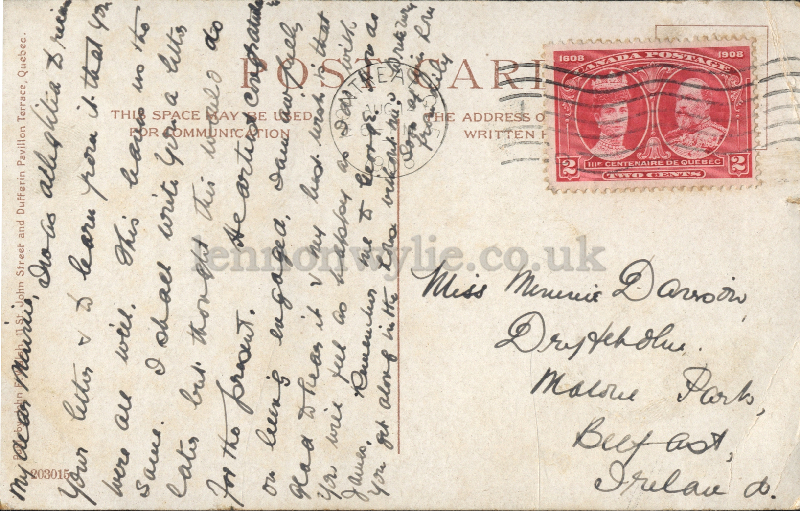 POST CARD
THIS SPACE MAY BE USED
FOR COMMUNICATION
THE ADDRESS O
WRITTEN H
1608 1908
CANADA POSTAGE
IIIe CENTENAIRE DE QUÉBEC
2 2
TWO CENTS
MONTREAL
AUG
John Street and Dufferin Pavilion Terrace, Quebec.
203015
lennonwylie.co.uk
My dear Minnie, I was delighted to receive
your letter & to learn from it that you
were all well. This leaves us the
same. I shall write you a letter
later but thought this would do
for the present. Heartiest congratulations
on being engaged, I am awfully
glad to hear it & my best wish is that
you will feel as happy as I do with
James. Remember me to George. How do
you get along in the
Miss Minnie Dawson,
Malone Park,
Belfast,
Ireland.